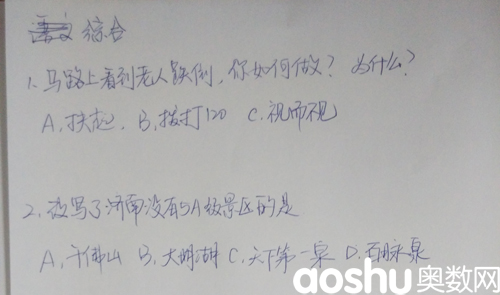 综合
1、马路上看到老人跌倒，你如何做？为什么？
A、扶起、B、拨打120 C、视而视
2、没写了济南没有5A级景区的是
A、千佛山 B、大明湖 C、天下第一泉 D、百脉泉
aoshu奥数网